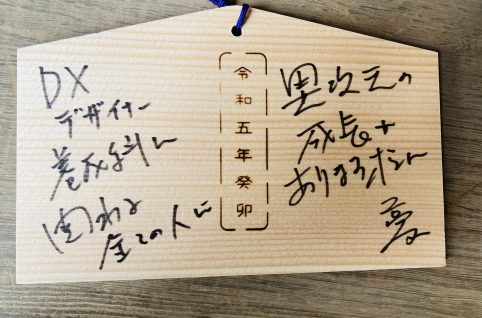 DX
デザイナー
養成塾に
関わる
全ての人に
令和五年癸卯
異次元の
成長が
ありますように